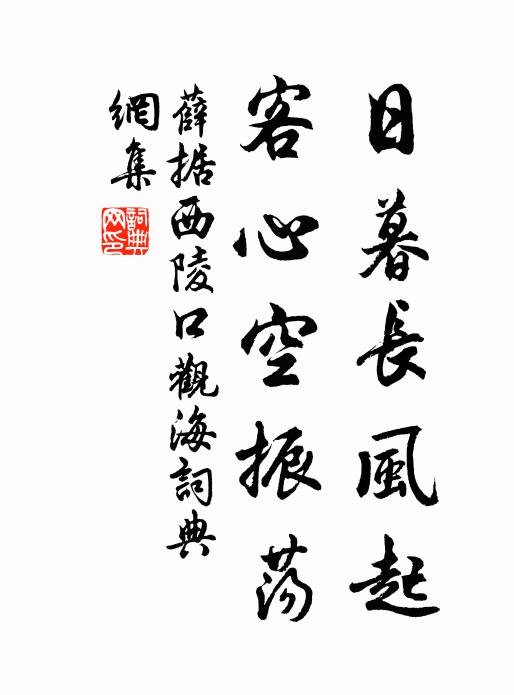 日暮長風起
客心空振蕩
薛据西陵口觀海詞典
網集
詞典網印